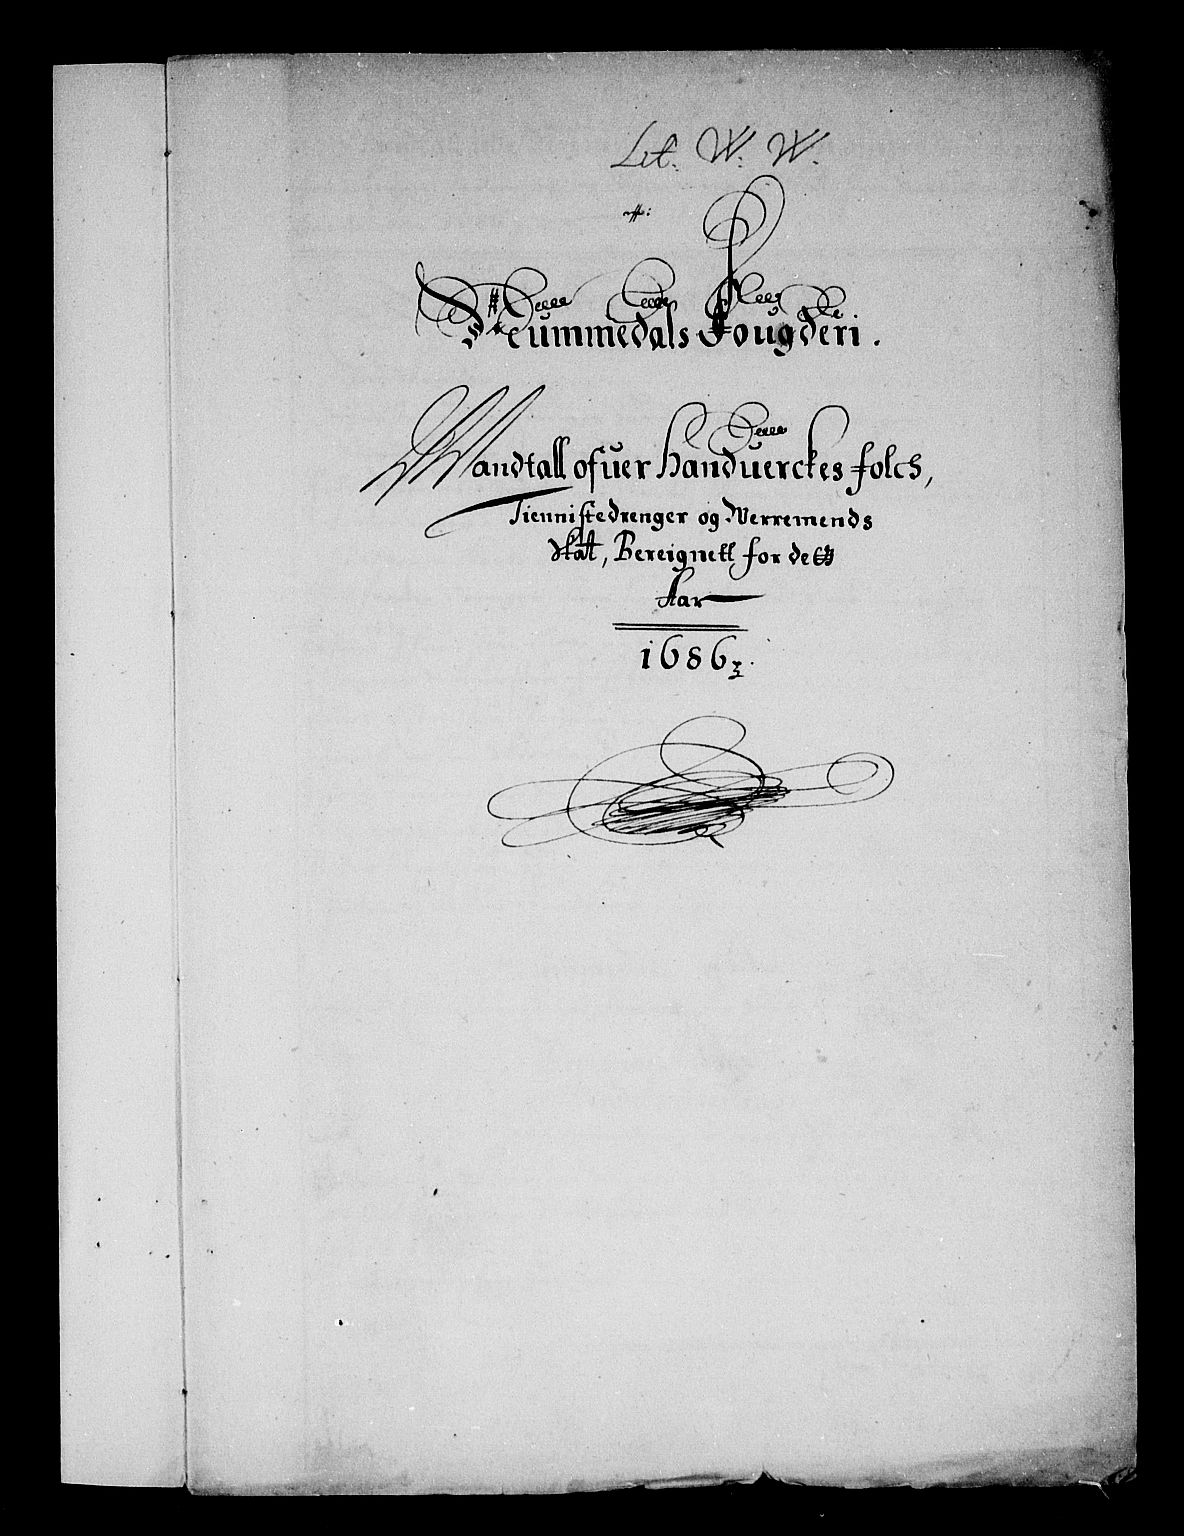 Lit. W. W.
Nummedals Fougderi.
Mandtall ofuer Handuerckes folch,
Tiennistedrenger og Werremends
skat, Bereignett for dett
Aar
1686